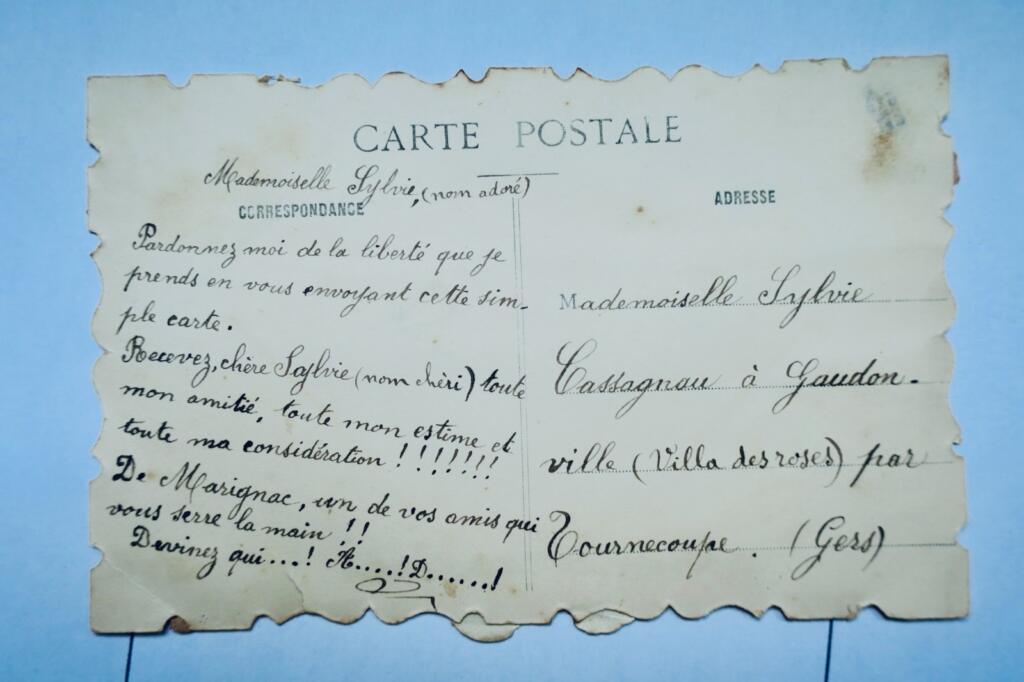 CARTE POSTALE
Mademoiselle Sylvie, (nom adoré)
CORRESPONDANCE
Pardonnez moi de la liberté que je
prends en vous envoyant cette sim-
ple carte.
Recevez, chère Sylvie (nom chéri) toute
mon amitié, toute mon estime et
toute ma considération !!!!!!!
De Marignac, un de vos amis qui
vous serre la main !!
Devinez qui....! A.....! D.......!
ADRESSE
Mademoiselle Sylvie
Cassagnau à Gaudon-
ville (Villa des roses) par
Tournecoupe. (Gers)